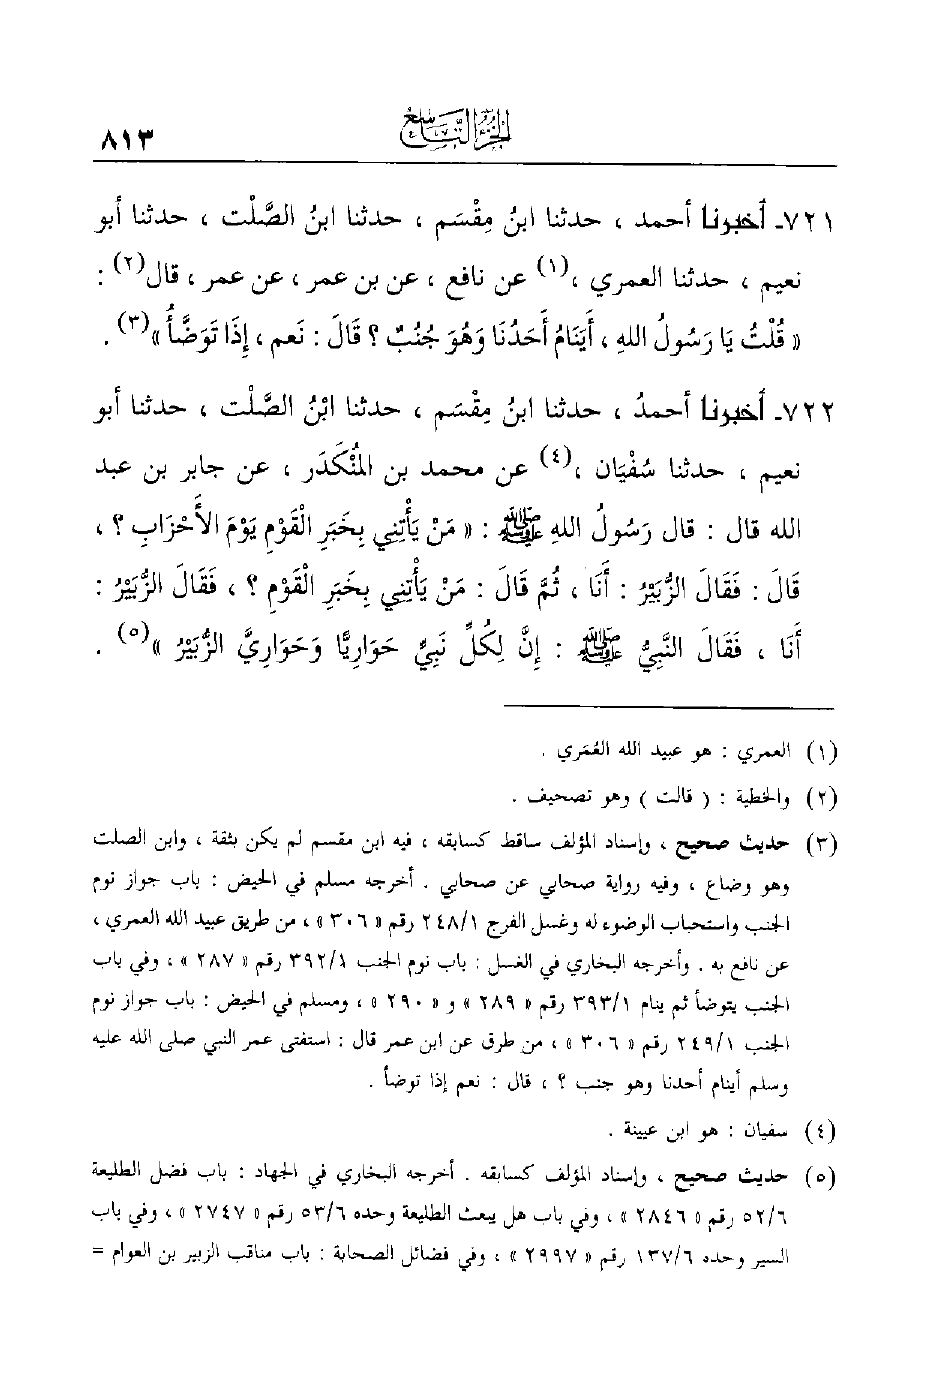 الجزء التاسع
٨١٣
٧٢١ـ أخبرنا أحمد ، حدثنا ابنُ مِقْسَم ، حدثنا ابنُ الصَّلْت ، حدثنا أبو
نعيم ، حدثنا العمري ،(١) عن نافع ، عن بن عمر ، عن عمر ، قال(٢) :
« قُلْتُ يَا رَسُولُ اللهِ ، أَيَنَامُ أَحَدُنَا وَهُوَ جُنُبٌ ؟ قَالَ : نَعم ، إِذَا تَوَضَّأُ »(٣) .
٧٢٢ـ أخبرنا أحمدُ ، حدثنا ابنُ مِقْسَم ، حدثنا ابْنُ الصَّلْت ، حدثنا أبو
نعيم ، حدثنا سُفْيَان ،(٤) عن محمد بن المُنْكَدَر ، عن جابر بن عبد
الله قال : قال رَسُولُ اللهِ ﷺ : « مَنْ يَأْتِنِي بِخَبَرِ الْقَوْمِ يَوْمَ الأَحْزَابِ ؟ ،
قَالَ : فَقَالَ الزُّبَيْرُ : أَنَا ، ثُمَّ قَالَ : مَنْ يَأْتِنِي بِخَبَرِ الْقَوْمِ ؟ ، فَقَالَ الزُّبَيْرُ :
أَنَا ، فَقَالَ النَّبِيُّ ﷺ : إِنَّ لِكُلِّ نَبِيٍّ حَوَارِيًّا وَحَوَارِيَّ الزُّبَيْرُ »(٥) .
(١) العمري : هو عبيد الله العُمَري .
(٢) والخطية : ( قالت ) وهو تصحيف .
(٣) حديث صحيح ، وإسناد المؤلف ساقط كسابقه ، فيه ابن مقسم لم يكن بثقة ، وابن الصلت
وهو وضاع ، وفيه رواية صحابي عن صحابي . أخرجه مسلم في الحيض : باب جواز نوم
الجنب واستحباب الوضوء له وغسل الفرج ٢٤٨/١ رقم « ٣٠٦ » ، من طريق عبيد الله العمري ،
عن نافع به . وأخرجه البخاري في الغسل : باب نوم الجنب ٣٩٢/١ رقم « ٢٨٧ » ، وفي باب
الجنب يتوضأ ثم ينام ٣٩٣/١ رقم « ٢٨٩ » و « ٢٩٠ » ، ومسلم في الحيض : باب جواز نوم
الجنب ٢٤٩/١ رقم « ٣٠٦ » ، من طرق عن ابن عمر قال : استفتى عمر النبي صلى الله عليه
وسلم أينام أحدنا وهو جنب ؟ ، قال : نعم إذا توضأ .
(٤) سفيان : هو ابن عيينة .
(٥) حديث صحيح ، وإسناد المؤلف كسابقه . أخرجه البخاري في الجهاد : باب فضل الطليعة
٥٢/٦ رقم « ٢٨٤٦ » ، وفي باب هل يبعث الطليعة وحده ٥٣/٦ رقم « ٢٧٤٧ » ، وفي باب
السير وحده ١٣٧/٦ رقم « ٢٩٩٧ » ، وفي فضائل الصحابة : باب مناقب الزبير بن العوام =